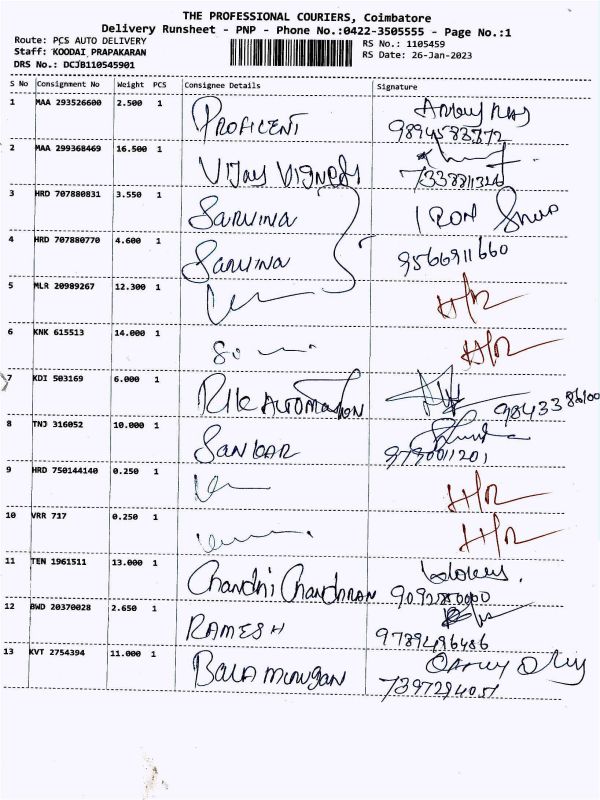 THE PROFESSIONAL COURIERS, Coimbatore
Delivery Runsheet - PNP - Phone No.:0422-3505555 - Page No.:1
Route: PCS AUTO DELIVERY
RS No.: 1105459
Staff: KOODAI PRAPAKARAN
RS Date: 26-Jan-2023
DRS No.: DCJB110545901
S No Consignment No Weight PCS Consignee Details Signature
1 MAA 293526600 2.500 1 PROFICENT
2 MAA 299368469 16.500 1 VIJAY VIGNESH
3 HRD 707880831 3.550 1 SARVINA IRON Shop
4 HRD 707880770 4.600 1 SARVINA 9566911660
5 MLR 20989267 12.300 1 H/R
6 KNK 615513 14.000 1 H/R
7 KDI 503169 6.000 1 AUTOMATION 9843386100
8 TNJ 316052 10.000 1 SANKAR 9790011201
9 HRD 750144140 0.250 1 H/R
10 VRR 717 0.250 1 H/R
11 TEN 1961511 13.000 1 Chandni Chandhran
12 BWD 20370028 2.650 1 RAMESH 9789496486
13 KVT 2754394 11.000 1 BALAMURUGAN
7397294051